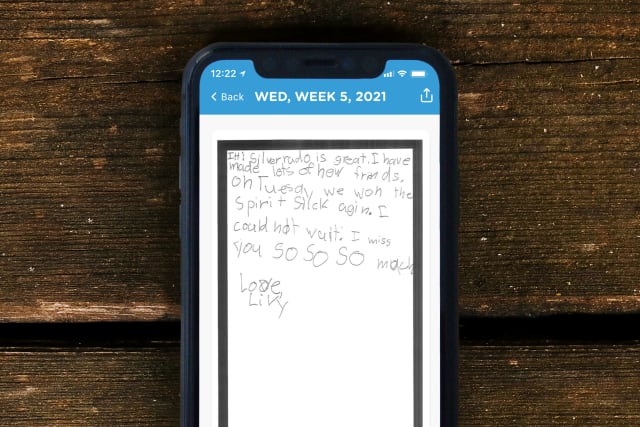 12:22
Back WED, WEEK 5, 2021
Silverado is great. I have
made lots of new frends.
Oh Tuesday we woh the
Spirit Stick agin. I
could not wait. I miss
you SO SO SO moch
Love
Livy